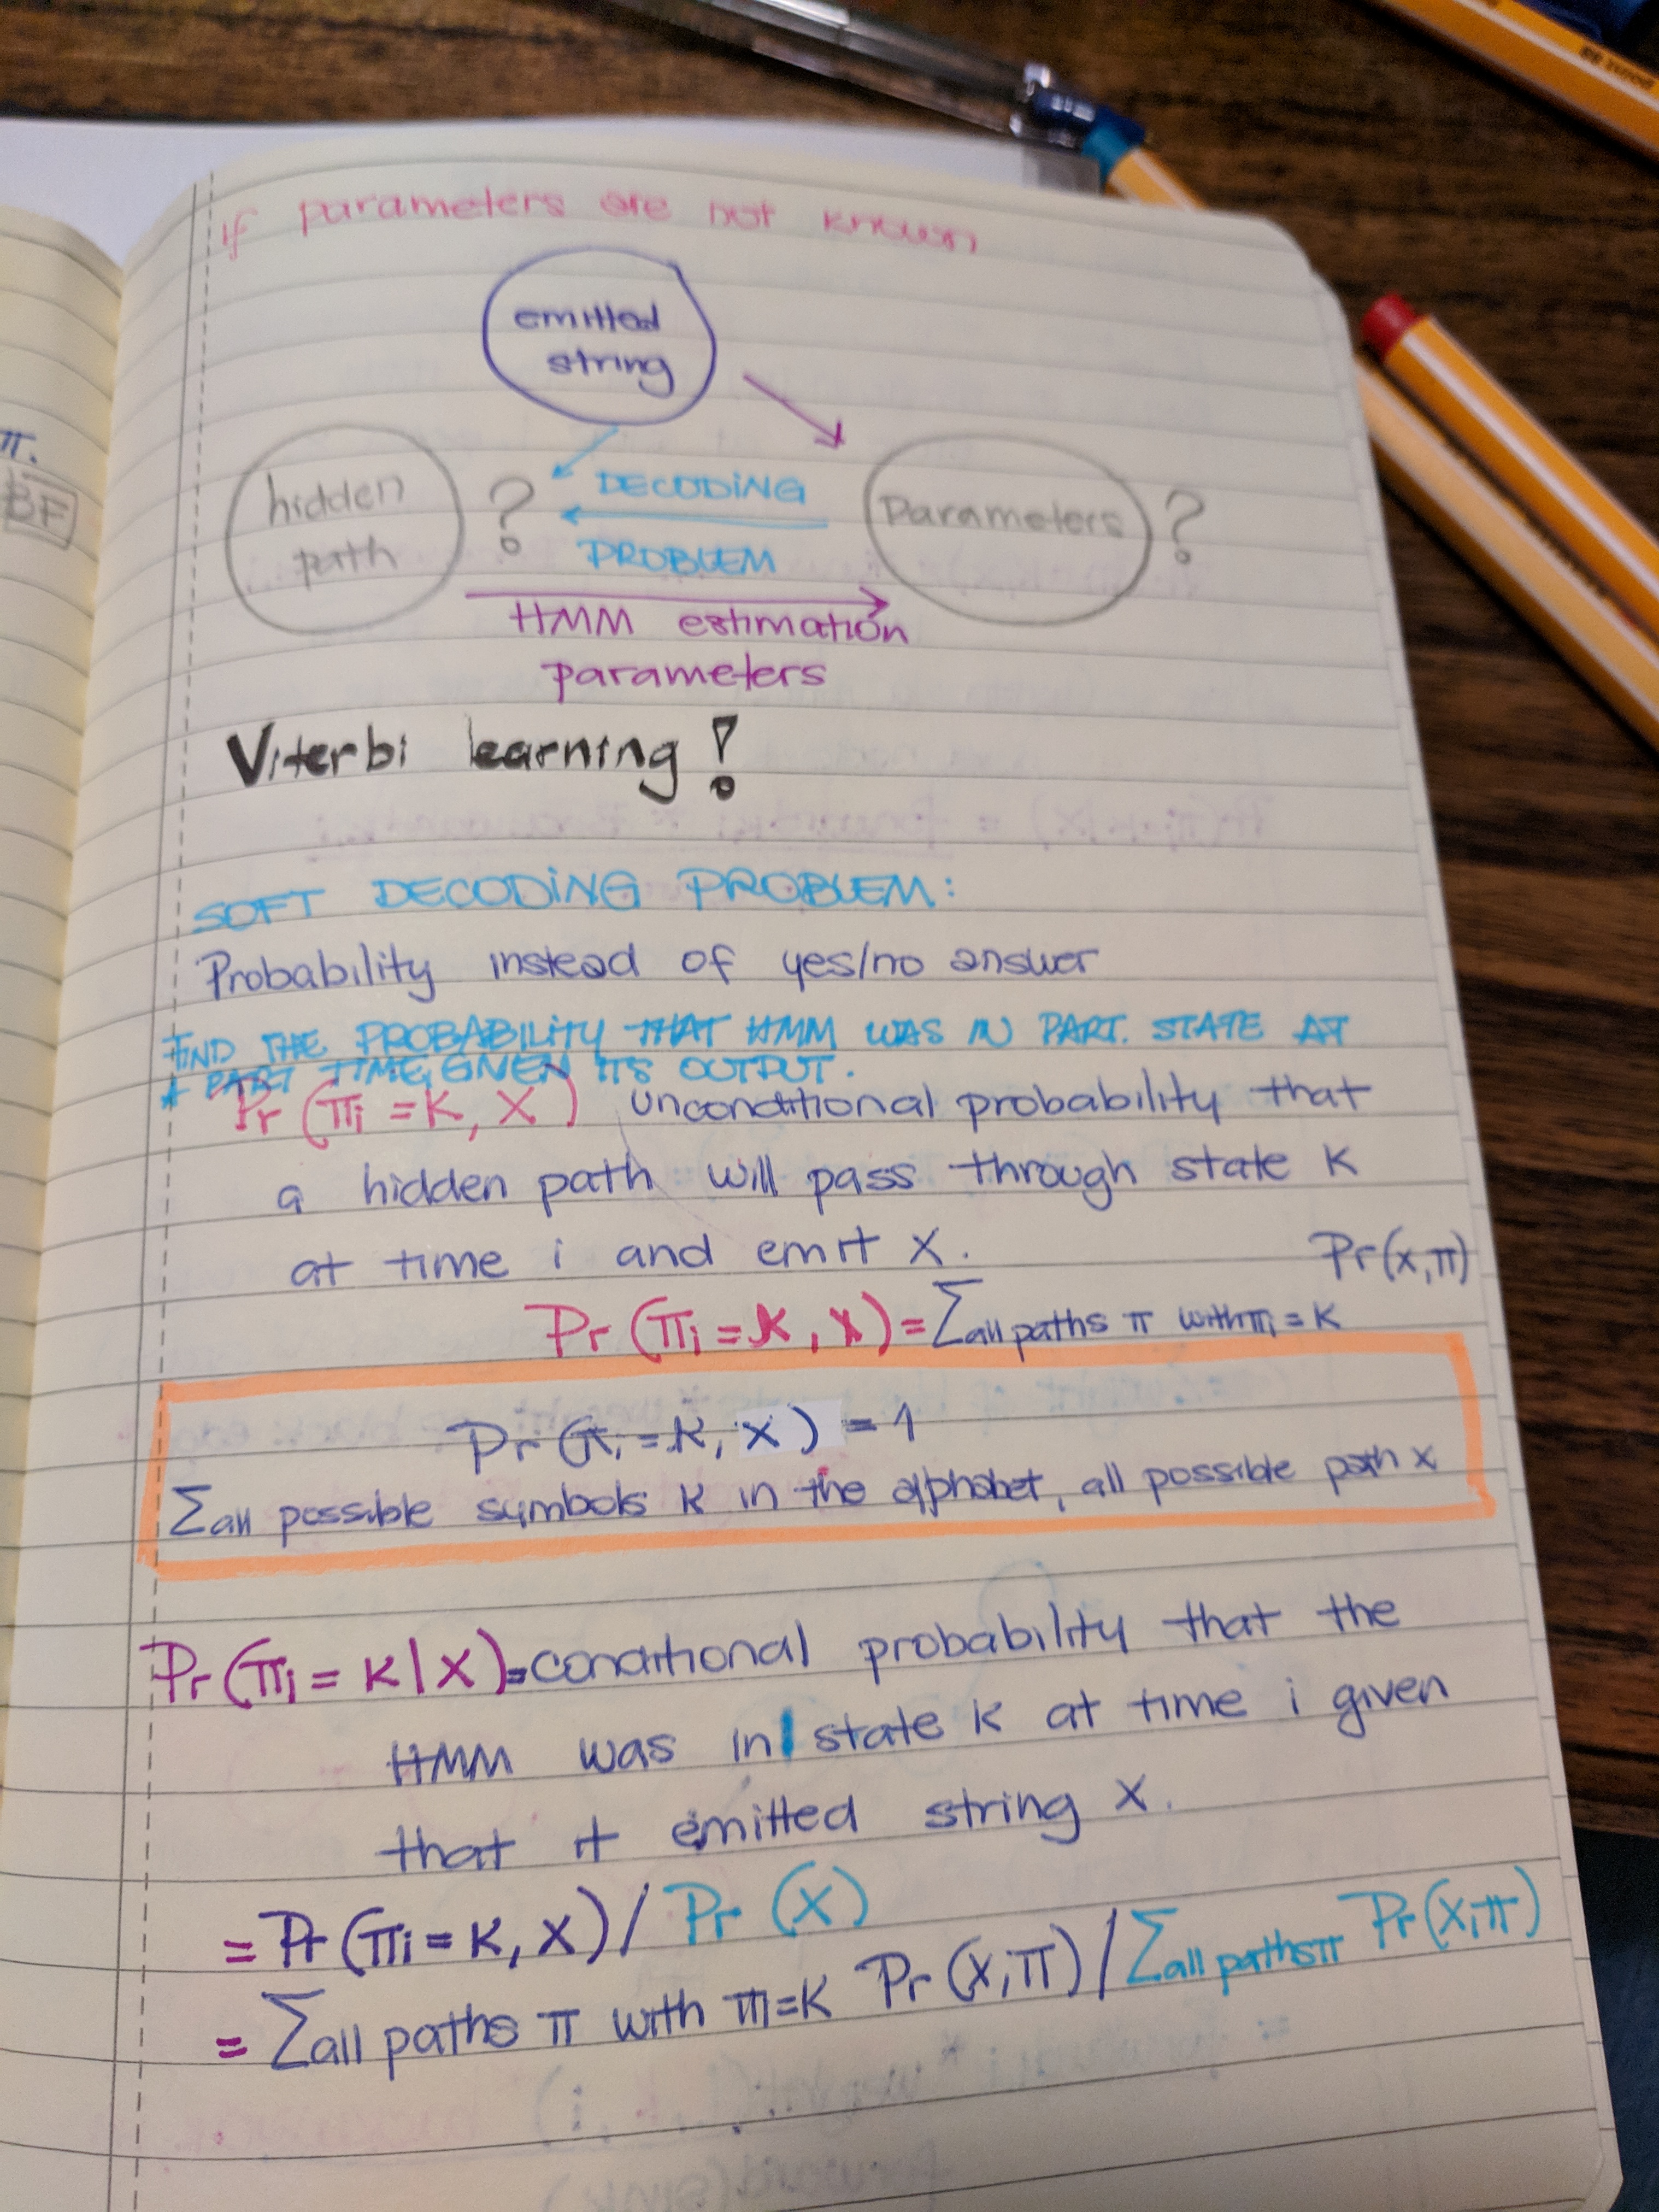 if parameters are not known
emitted
string
hidden
path
?
DECODING
PROBLEM
Parameters
?
HMM estimation
parameters
Viterbi learning!
SOFT DECODING PROBLEM:
Probability instead of yes/no answer
FIND THE PROBABILITY THAT HMM WAS IN PART. STATE AT
A PART TIME, GIVEN ITS OUTPUT.
Pr(πi = K, X) unconditional probability that
a hidden path will pass through state K
at time i and emit X.
Pr(x,π)
Pr(πi = K, X) = Σall paths π with πi = K
Pr(πi = K, X) = 1
Σall possible symbols K in the alphabet, all possible path x
Pr(πi = K | X) = conditional probability that the
HMM was in state K at time i given
that it emitted string X.
= Pr(πi = K, X) / Pr(X)
= Σall paths π with πi=K Pr(X,π) / Σall paths π Pr(X,π)
π.
BF